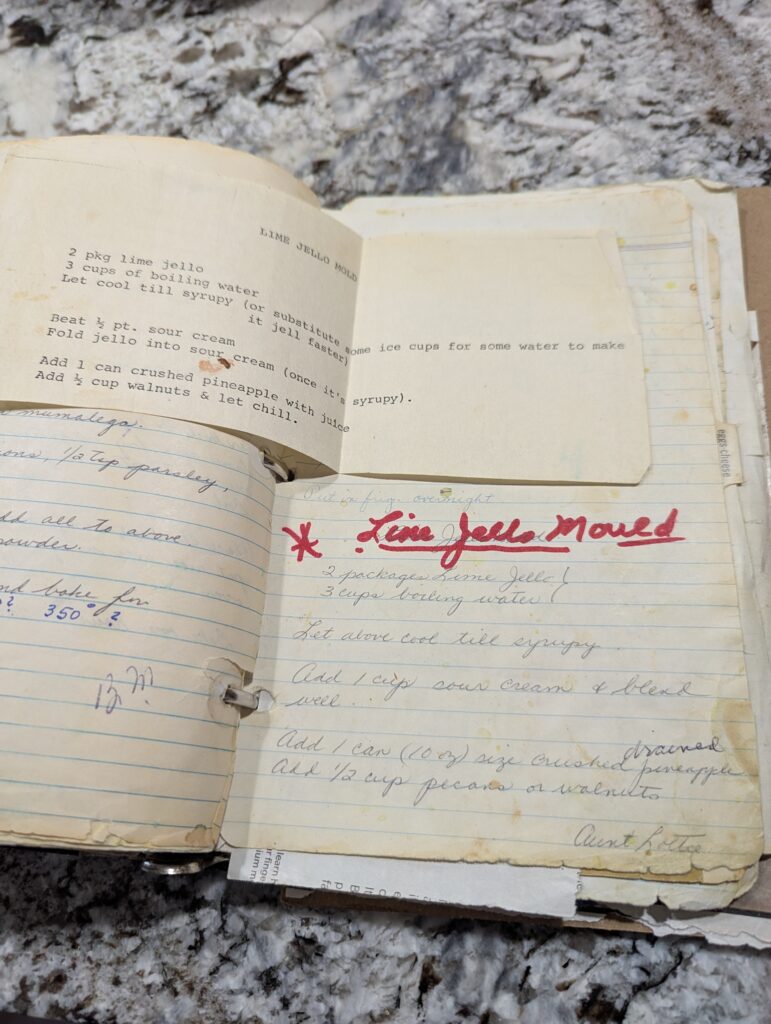 LIME JELLO MOLD
2 pkg lime jello
3 cups of boiling water
Let cool till syrupy (or substitute some ice cups for some water to make
it jell faster)
Beat ½ pt. sour cream
Fold jello into sour cream (once it's syrupy).
Add 1 can crushed pineapple with juice
Add ½ cup walnuts & let chill.
mumalega,
1/2 tsp parsley,
all to above
350° ?
bake for
eggs cheese
Put in frig. overnight
* Lime Jello Mould
2 packages Lime Jello
3 cups boiling water
Let above cool till syrupy
Add 1 cup sour cream & blend
well
drained
Add 1 can (10 oz) size crushed pineapple
Add 1/2 cup pecans or walnuts
Aunt Lottie